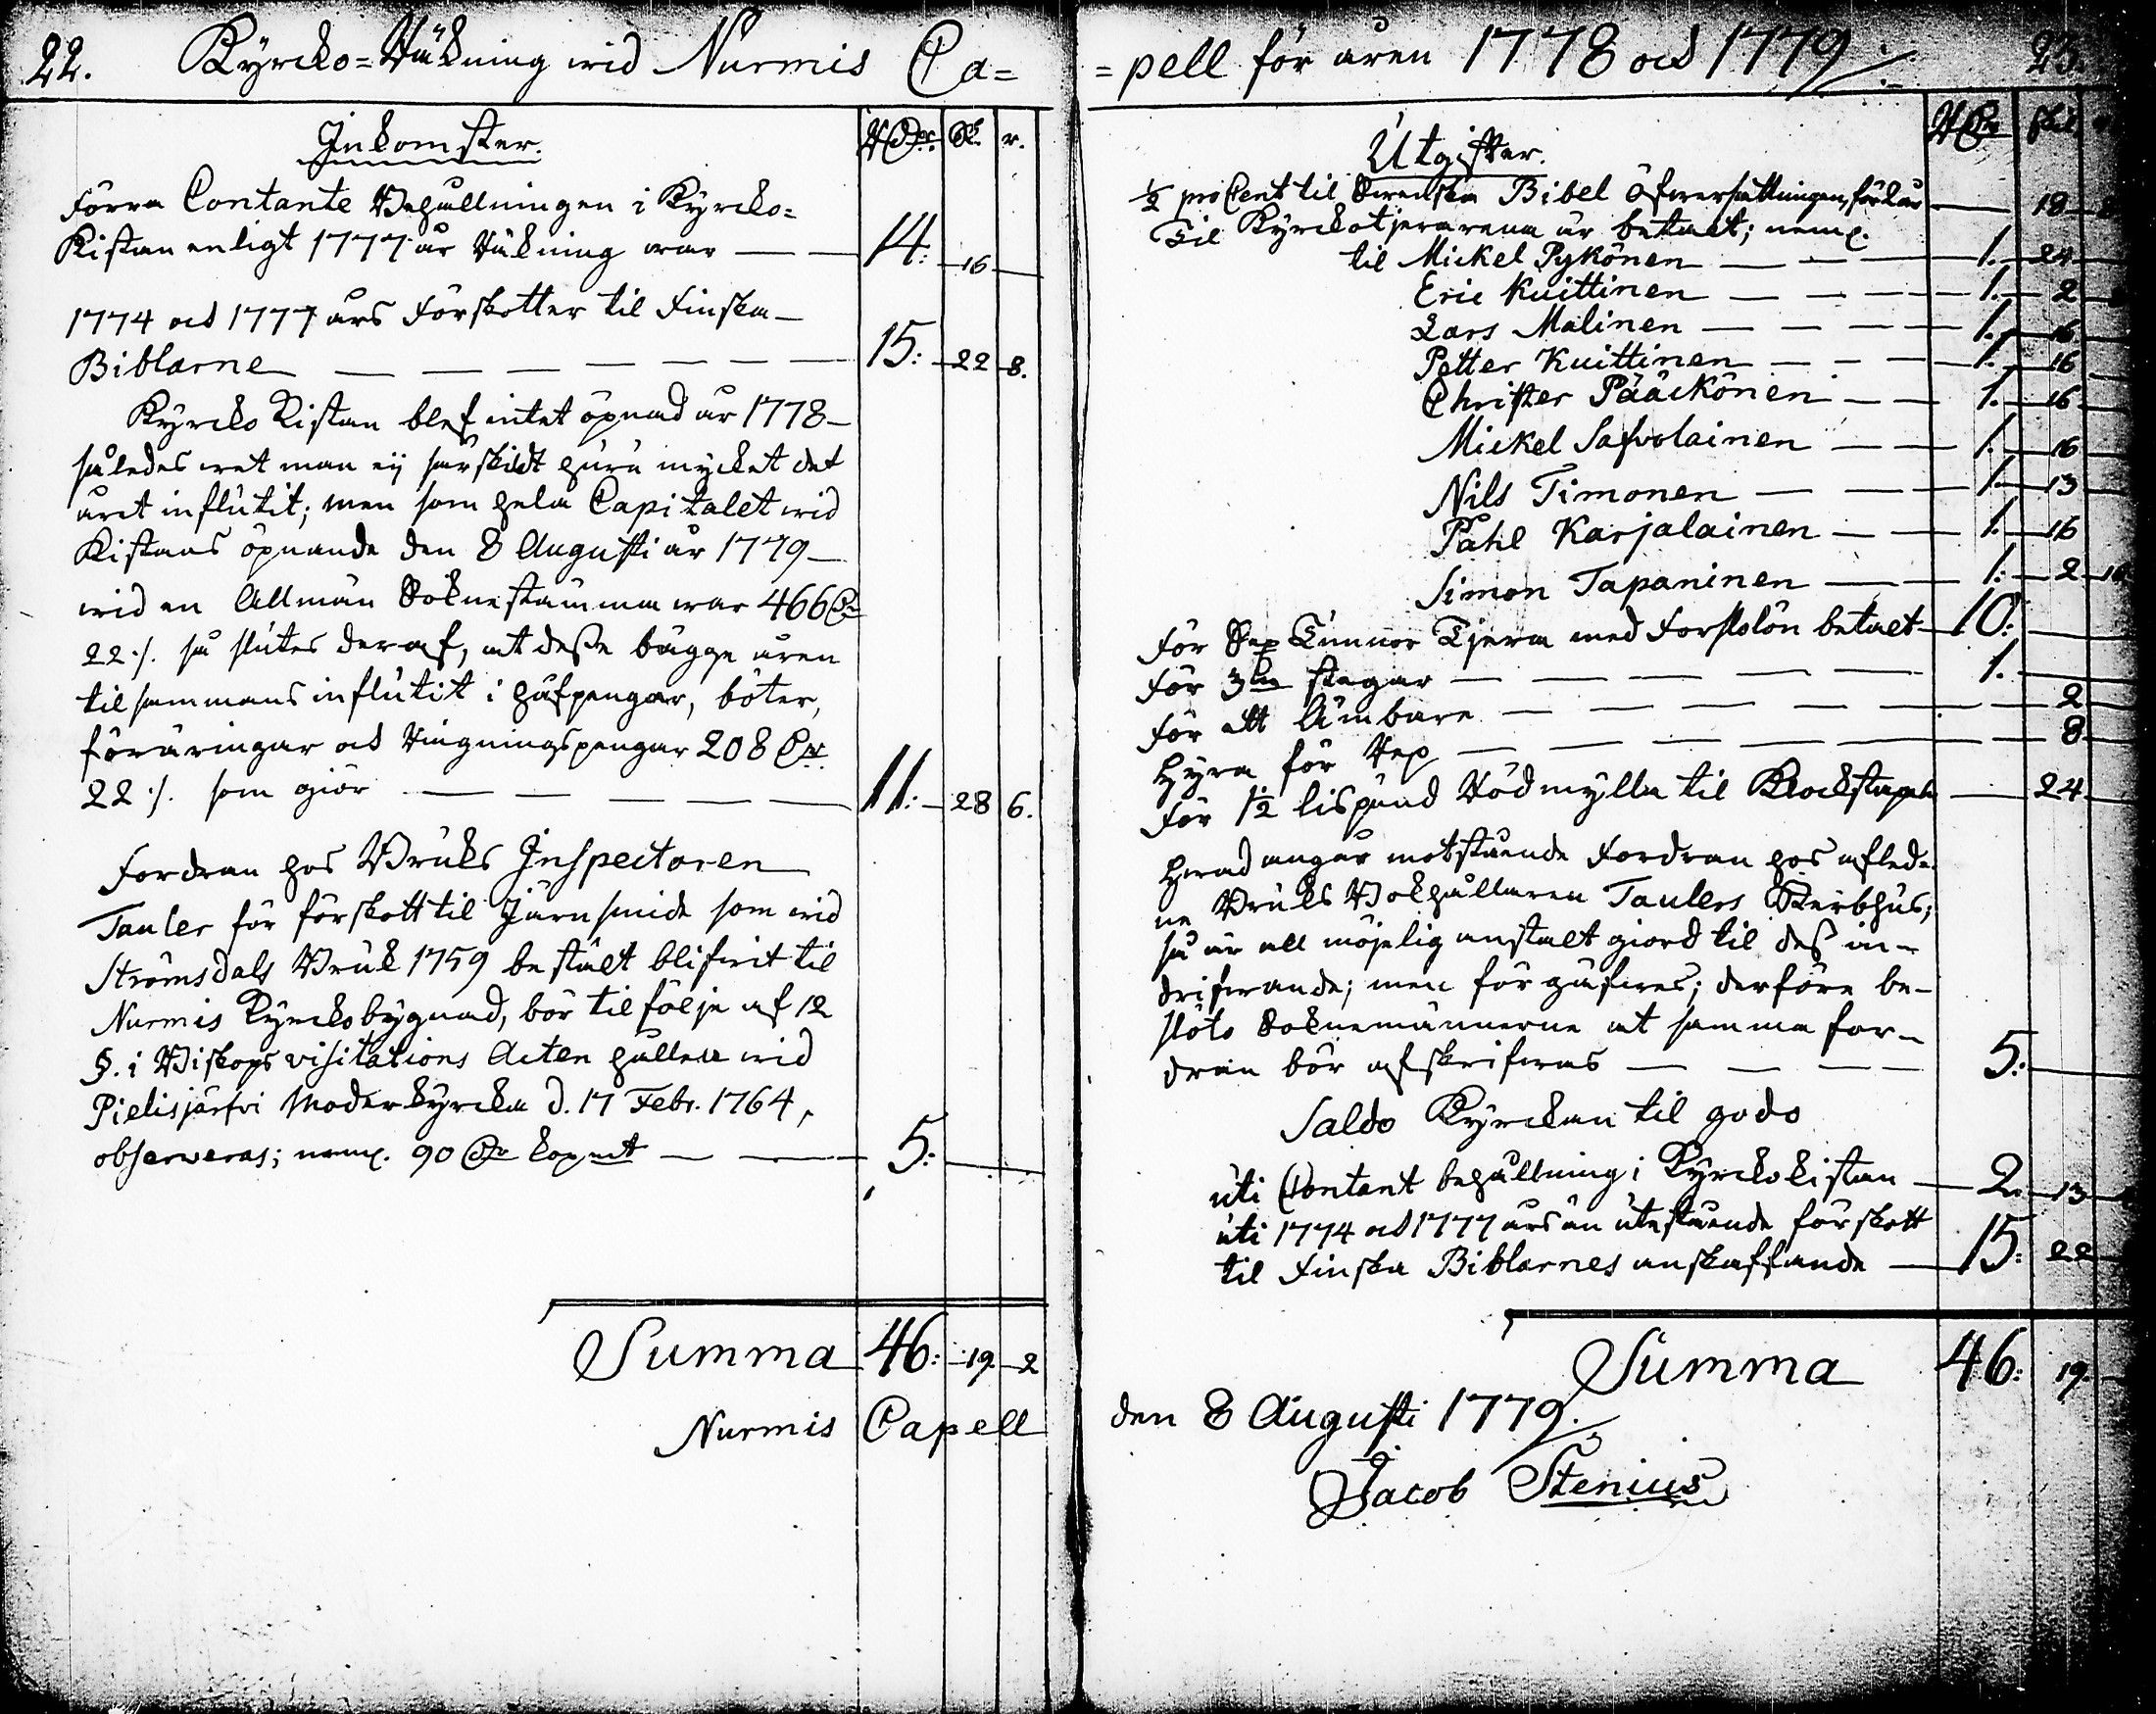 22. Kyrcko=Räkning wid Nurmis Ca=
Inkomster. RDr. sk. r.
Förra Contante Behållningen i Kyrcko=
Kistan enligt 1777 års Räkning war — 14: 16
1774 och 1777 års Förskotter til Finska
Biblarne — 15: 22 8.
Kyrcko Kistan blef intet öpnad år 1778
således wet man ej särskildt huru mycket det
året influtit; men som hela Capitalet wid
Kistans öpnande den 8 Augusti år 1779
wid en Allmän Sokne stämma war 466 Dr
22 :/. så slutes deraf, at desse bägge åren
tilsammans influtit i håfpengar, böter,
föräringar och Ringningspengar 208 Dr
22 :/. som giör — 11: 28 6.
Fordran hos Bruks Inspectoren
Tauler för förskott til Järnsmide som wid
Strömsdals Bruk 1759 bestält blifwit til
Nurmis Kyrckobygnad, bör til följe af 12
§. i Biskops visitations Acten hållen wid
Pielisjärfvi Moderkyrcka d. 17 Febr. 1764,
observeras; neml. 90 Dr kopmt — 5:
Summa 46: 19 2
Nurmis Capell
=pell för åren 1778 och 1779 23.
Utgifter. RDr skil
1/2 pro Cent til Swenska Bibel Öfwersättningen, för 2 år — 18
Til Kyrckotjenarena är betalt; neml.
til Mickel Pykönen — 1. 24
Eric Kuittinen — 1. 2
Lars Malinen — 1. 16
Petter Kuittinen — 1. 16
Christer Pääckönen — 1. 16
Mickel Safvolainen — 1. 16
Nils Timonen — 1. 13
Påhl Karjalainen — 1. 16
Simon Tapaninen — 1: 2 16
För Sex Tunnor Tjera med Forslolön betalt 10:
För 3ne stegar — 1.
För ett Ämbare — 2
Hyra för Rep — 8
För 1 1/2 lispund Rödmylla til Klockstapeln — 24
Hwad angår motstående Fordran hos afled=
ne Bruks Bokhållaren Taulers Sterbhus;
så är all möjelig anstalt giord til des in-
drifwande; men för gäfwes; derföre be-
slöto Soknemännerne at samma for-
dran bör afskrifwas — 5:
Saldo Kyrckan til godo
uti Contant behållning i Kyrckokistan — 2. 13
uti 1774 och 1777 års än utestående förskott
til Finska Biblarnes anskaffande — 15: 22
Summa 46: 19.
den 8 Augusti 1779.
Jacob Stenius